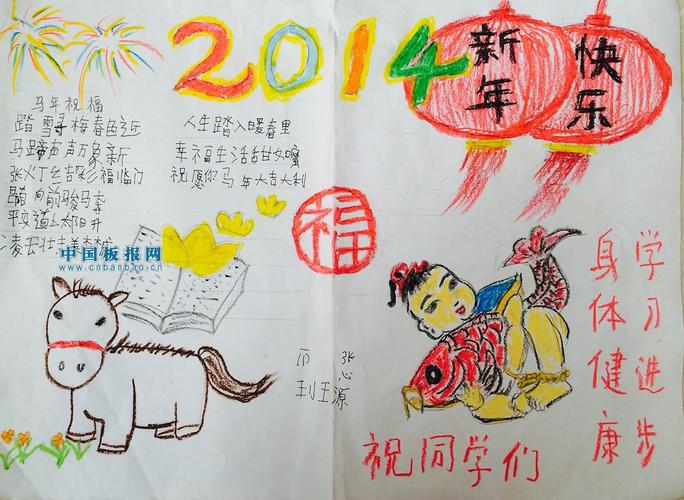 2014
新年
快乐
马年祝福
踏雪寻梅春色近
马蹄声声万象新
张灯结彩福临门
向前骏马奔
平安道上太阳升
凌云壮志
人生踏入暖春里
幸福生活甜如蜜
祝愿你马年大吉大利
中国板报网
www.cnbanbao.cn
福
祝同学们
学习进步
身体健康